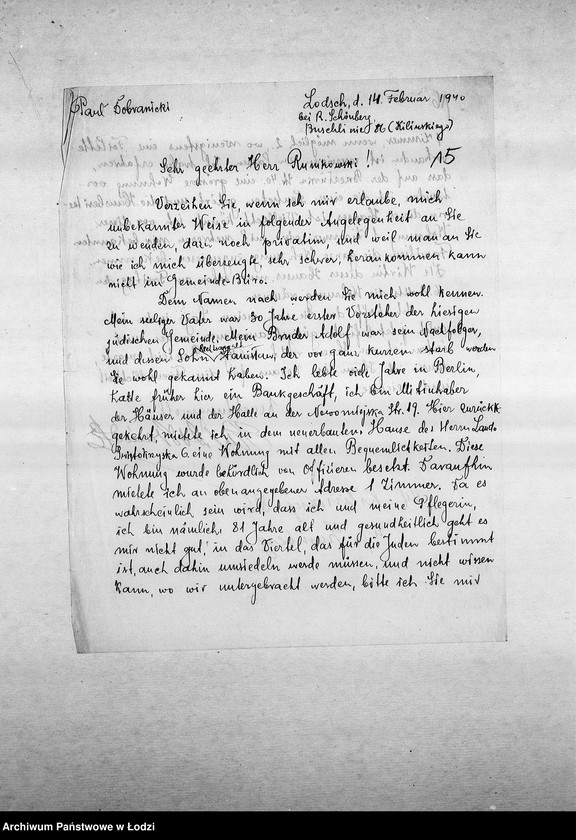 Paul Dobranicki
Lodsch, d. 14. Februar 1940
bei R. Schönberg
Buschlinie 86 (Kilinskiego)
15
Sehr geehrter Herr Rumkowski!
Verzeihen Sie, wenn ich mir erlaube, mich
unbekannter Weise in folgender Angelegenheit an Sie
zu wenden, dazu noch privatim, und weil man an Sie
wie ich mich überzeugte sehr schwer, herankommen kann
nicht im Gemeinde Büro.
Dem Namen nach werden Sie mich wohl kennen.
Mein seliger Vater war 30 Jahre erster Vorsteher der hiesigen
jüdischen Gemeinde. Mein Bruder Adolf war sein Nachfolger,
und dessen Sohn Stanislaw, der vor ganz kurzem starb werden
Sie wohl gekannt haben. Ich lebte viele Jahre in Berlin,
hatte früher hier ein Bankgeschäft, ich bin Mitinhaber
der Häuser und der Halle an der Nowomiejska Str. 19. Hier zurück
gekehrt, mietete ich in dem neuerbauten Hause des Herrn Lando
6. eine Wohnung mit allen Bequemlichkeiten. Diese
Wohnung wurde behördlich von Offizieren besetzt. Daraufhin
mietete ich an obenangegebener Adresse 1 Zimmer. Da es
wahrscheinlich sein wird, dass ich und meine Pflegerin,
ich bin nämlich 81 Jahre alt und gesundheitlich geht es
mir nicht gut, in das Viertel, das für die Juden bestimmt
ist, auch dahin umsiedeln werde müssen, und nicht wissen
kann, wo wir untergebracht werden, bitte ich Sie mir
Archiwum Państwowe w Łodzi